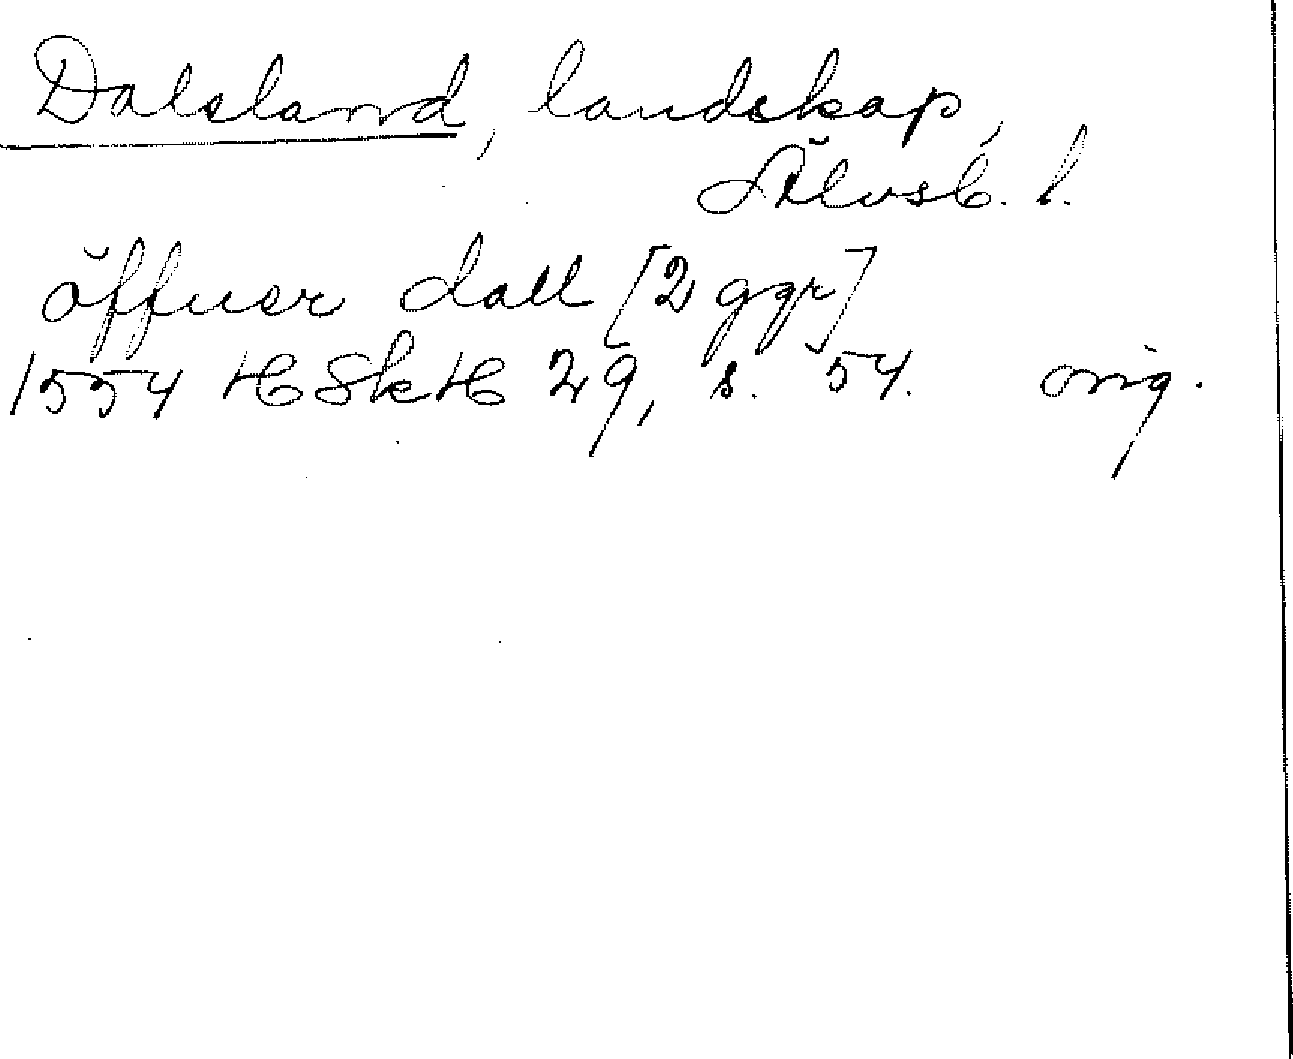 Dalsland, landskap,
Älvsb. l.
öffuer dall [2 ggr]
1554 HSkH 29, s. 54. orig.